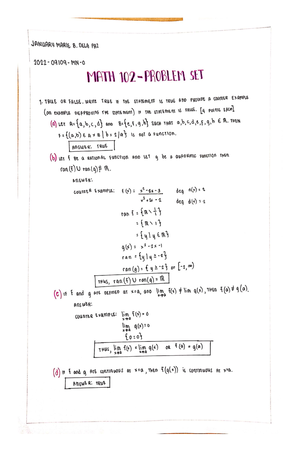 JANUARY MARIE B. DELA PAZ
2022-09109-MN-0
MATH 102-PROBLEM SET
1. TRUE OR FALSE. WRITE TRUE IF THE STATEMENT IS TRUE AND PROVIDE A COUNTER EXAMPLE
(AN EXAMPLE DISPROVING THE STATEMENT) IF THE STATEMENT IS FALSE. [2 POINTS EACH]
(a) LET A={a,b,c,d} AND B={e,f,g,h} SUCH THAT a,b,c,d,e,f,g,h ∈ ℝ, THEN
IS NOT A FUNCTION.
ANSWER: TRUE
(b) LET f BE A RATIONAL FUNCTION AND LET g BE A QUADRATIC FUNCTION THEN
ran(f) ∪ ran(g) ≠ ℝ.
ANSWER:
COUNTER EXAMPLE: f(x) =
ran f = {ℝ \
= {ℝ \
= {y | y ∈ ℝ}
g(x) = x² - 2x - 1
ran = {y | y ≥ -2}
ran(g) = {y ≥ -2} or [-2, ∞)
THUS, ran(f) ∪ ran(g) = ℝ
(c) IF f AND g ARE DEFINED AT x=a, AND lim f(x) ≠ lim g(x), THEN f(a) ≠ g(a).
ANSWER:
COUNTER EXAMPLE: lim f(x) = 0
lim g(x) = 0
{0 = 0}
THUS, lim f(x) = lim g(x) OR f(a) = g(a)
(d) IF f AND g ARE CONTINUOUS AT x=a, THEN f(g(x)) IS CONTINUOUS AT x=a.
ANSWER: TRUE